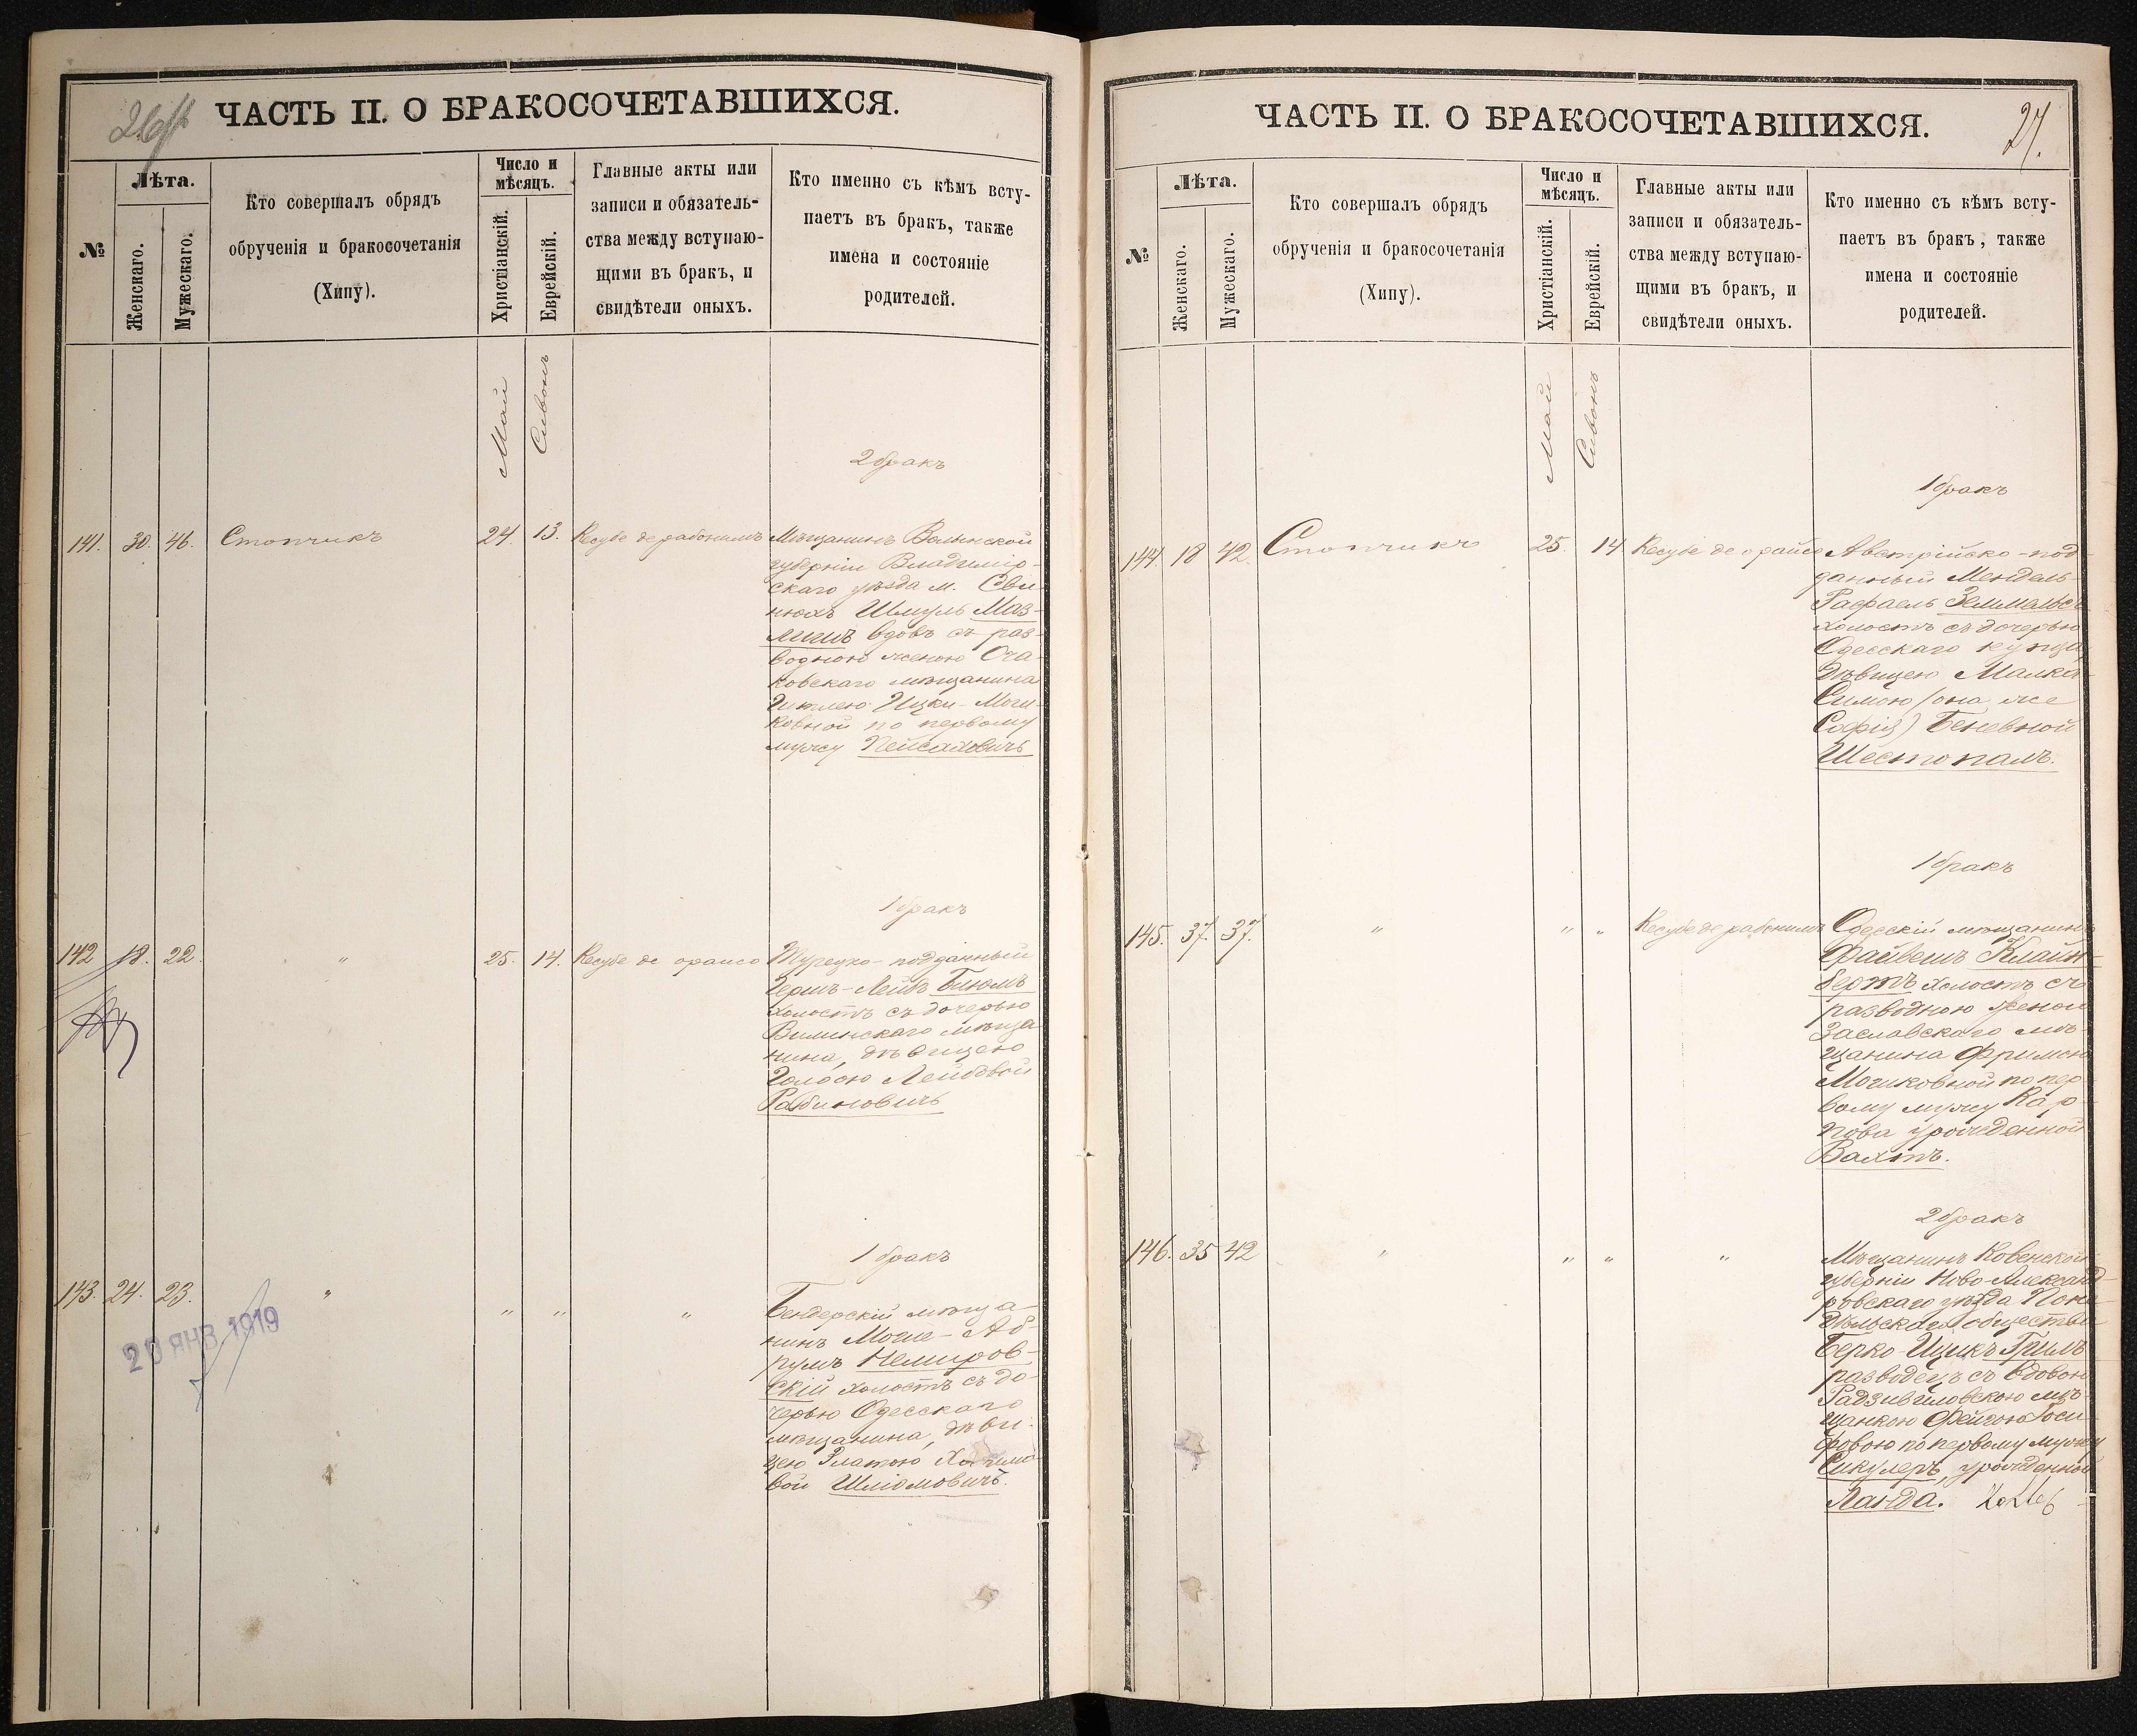 26 ЧАСТЬ II. О БРАКОСОЧЕТАВШИХСЯ.
№
Лѣта.
Женскаго.
Мужескаго.
Кто совершалъ обрядъ
обрученія и бракосочетанія
(Хипу).
Число и
мѣсяцъ.
Христіанскій.
Еврейскій.
Главные акты или
записи и обязатель-
ства между вступаю-
щими въ бракъ, и
свидѣтели оныхъ.
Кто именно съ кѣмъ всту-
паетъ въ бракъ, также
имена и состояніе
родителей.
Май
Сивонъ
2 бракъ
141. 30. 46. Стопчикъ 24. 13. Кесубе де рабонимъ Мѣщанинъ Волынской
губерніи Владимір-
скаго уѣзда м. Сви-
нюхъ Шмуль Маз-
лишъ вдовъ съ раз-
водною женою Оча-
ковскаго мѣщанина
Гитлею Ицки-Мош-
ковной по первому
мужу Пейсаховичъ
1 бракъ
142 18. 22. " 25. 14. Кесубе де орайсо Турецко-подданный
Гершъ-Лейбъ Блюмъ
холостъ съ дочерью
Вилинскаго мѣща
нина, дѣвицею
Голдою Лейбовой
Рабиновичъ
1 бракъ
143. 24. 23. " " " " Бендерскій мѣща-
нинъ Мошe-Аб-
румъ Немиров-
скій холостъ съ до-
черью Одесскаго
мѣщанина, дѣви-
цею Златою
вой Шліомовичъ.
20 ЯНВ 1919
ЧАСТЬ II. О БРАКОСОЧЕТАВШИХСЯ. 27.
№
Лѣта.
Женскаго.
Мужескаго.
Кто совершалъ обрядъ
обрученія и бракосочетанія
(Хипу).
Число и
мѣсяцъ.
Христіанскій.
Еврейскій.
Главные акты или
записи и обязатель-
ства между вступаю-
щими въ бракъ, и
свидѣтели оныхъ.
Кто именно съ кѣмъ всту-
паетъ въ бракъ, также
имена и состояніе
родителей.
Май
Сивонъ
1 бракъ
144. 18 42. Стопчикъ 25. 14 Кесубе де орайсо Австрійско-под-
данный Мендель-
Рафаель
холостъ съ дочерью
Одесскаго купца
дѣвицею Малкѣ-
Симою (она же
Софія) Беневной
Шестопалъ.
1 бракъ
145. 37. 37. " " " Кесубе де рабонимъ Одесскій мѣщанинъ
Файвешъ Клайн-
бертъ холостъ съ
разводною женой
Заславскаго мѣ-
щанина Фримою
Мошковной по пер-
вому мужу Кар-
пова урожденной
Вахтъ.
2 бракъ
146. 35 42 " " " " Мѣщанинъ Ковенской
губерніи Ново-Александ-
ровскаго уѣзда Поне-
дѣльскаго общества
Берко-Ицикъ Гримъ
разводецъ съ вдовою
Радзивиловскою мѣ-
щанкою Фейгою Іоси-
фовою по первому мужу
Сикулеръ, урожденной
Ланда.